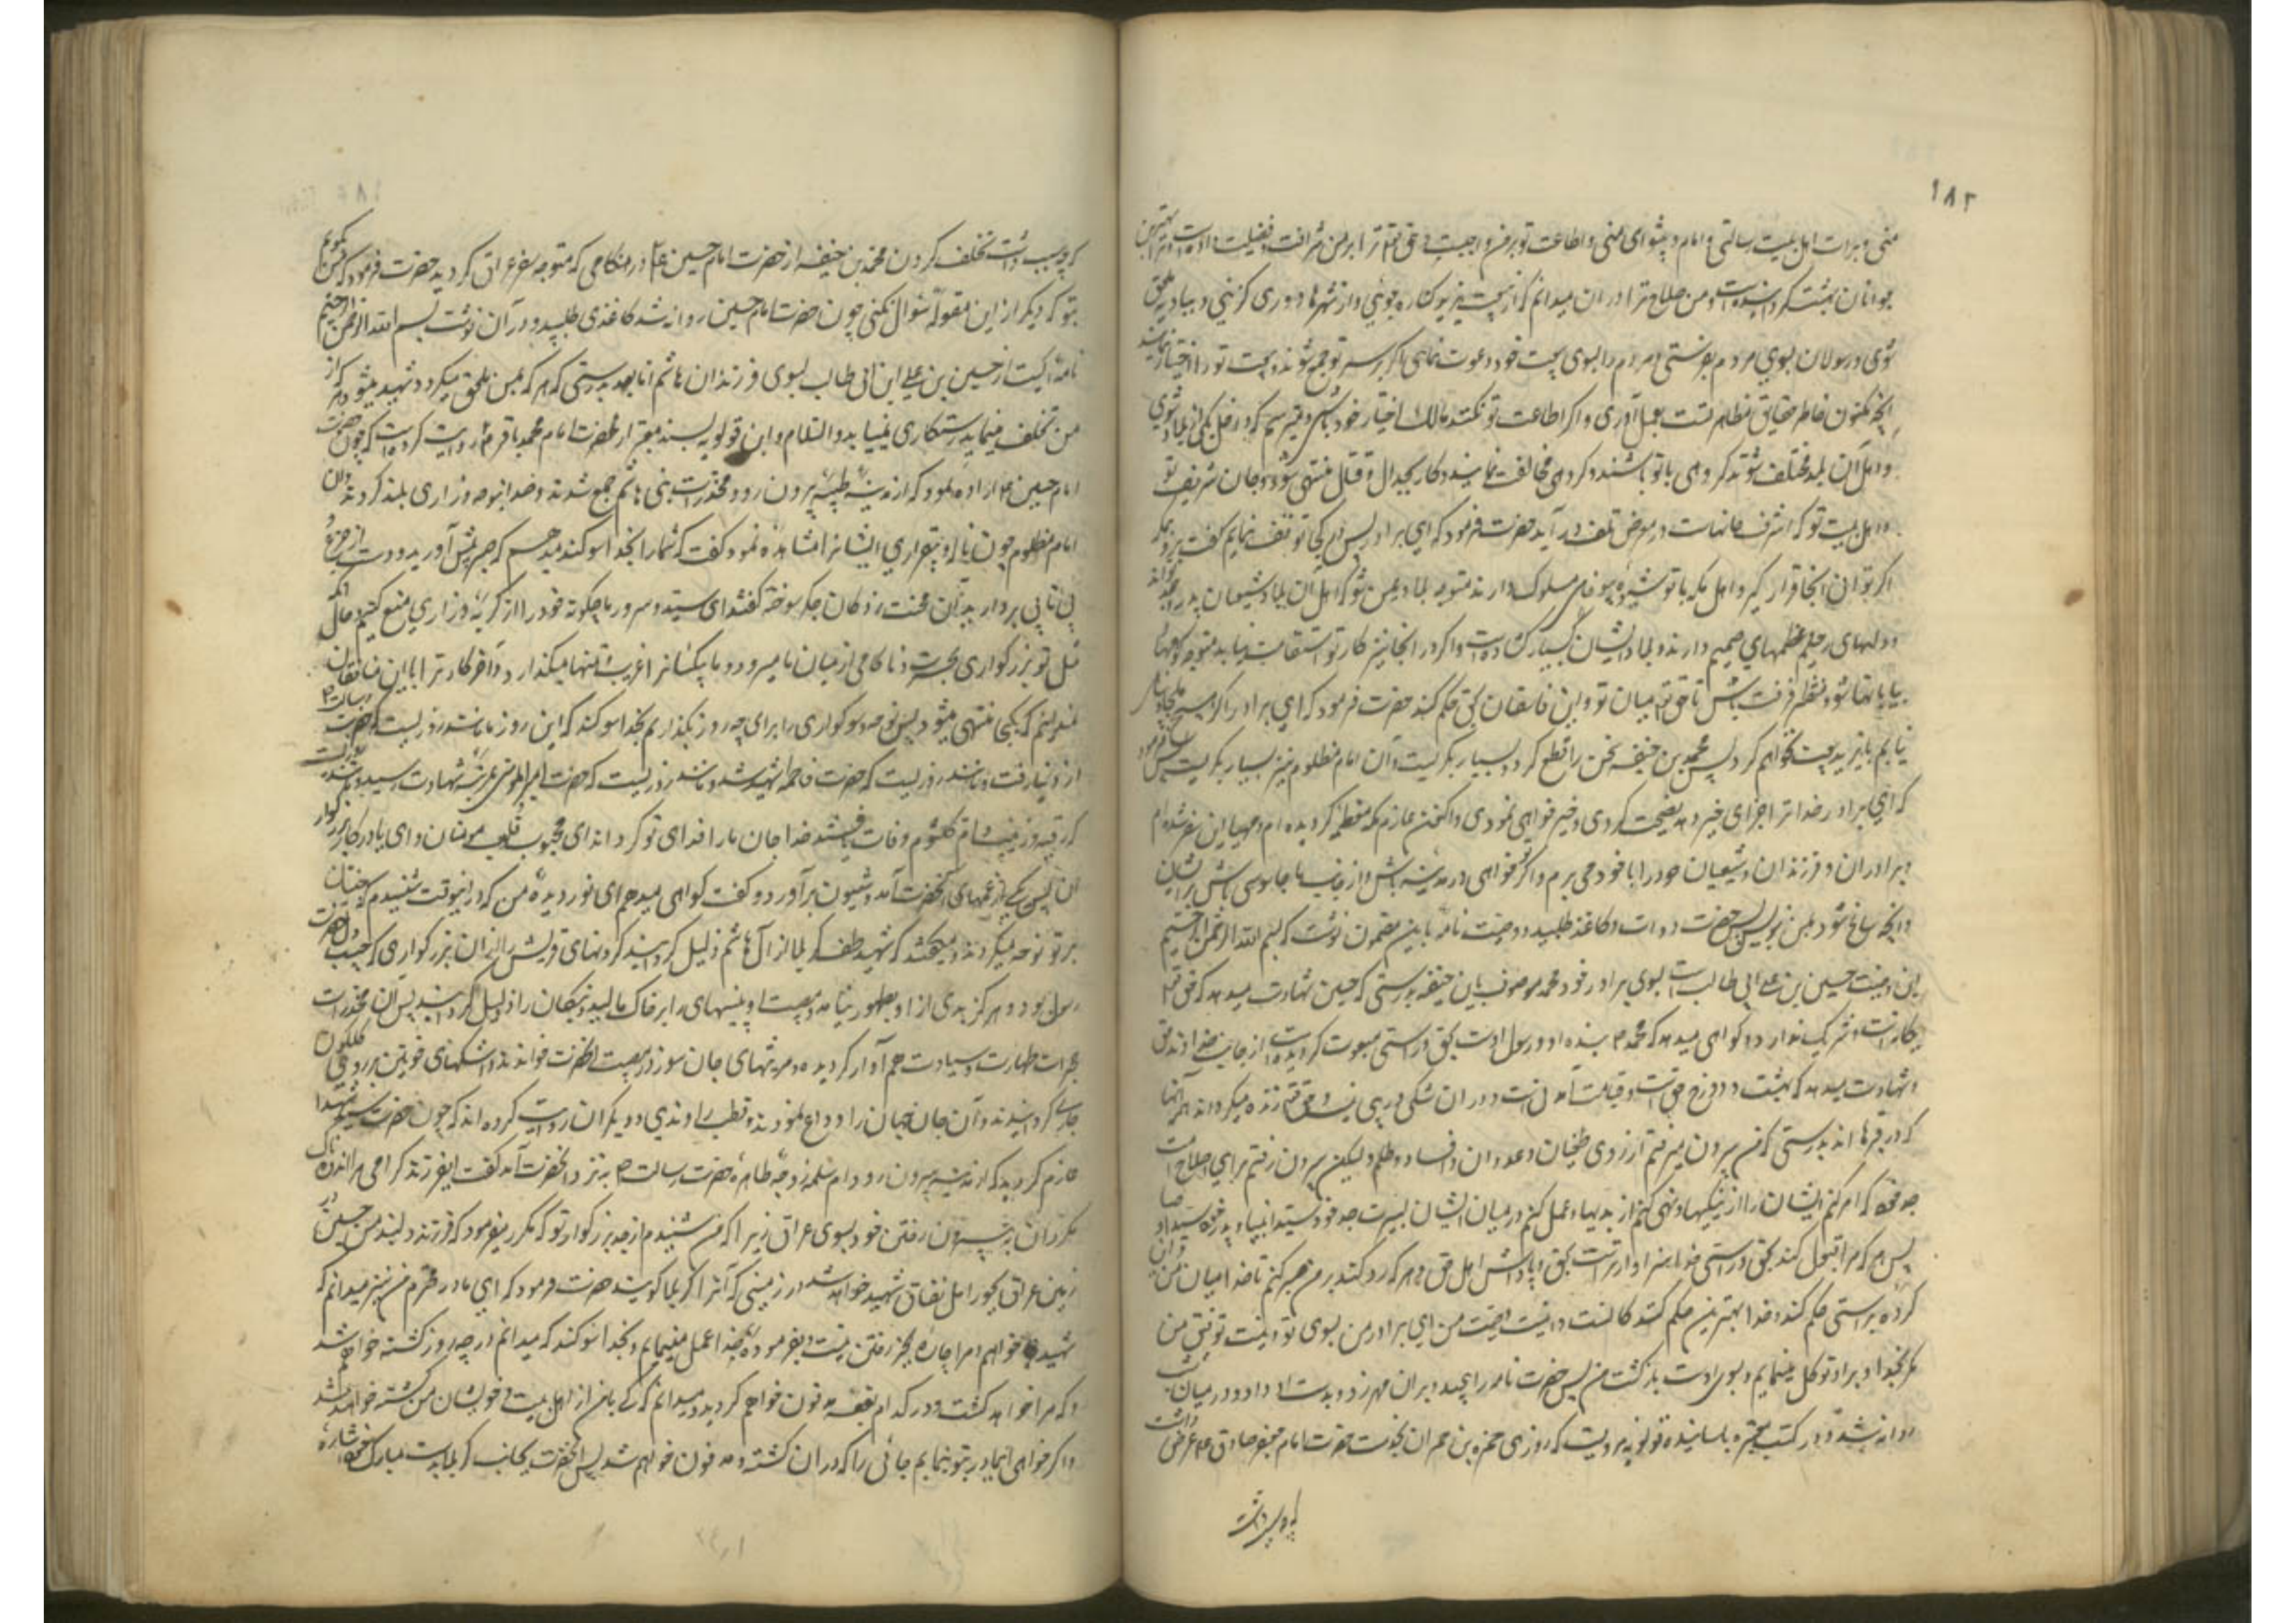 ۱۸۳
منی و بزرگ اهل بیت رسالتی و امام و پیشوای منی و اطاعت تو بر من واجبست حق تعالی ترا بر من شرافت و فضیلت داده است و بهترین
جوانان بهشت گردانیده است و من صلاح ترا در آن میدانم که از بیعت یزید کناره جوئی و از شهرها دوری گزینی و ببادیه ملحق
شوی و رسولان بسوی مردم بفرستی و مردم را بسوی بیعت خود دعوت نمائی اگر بر سر تو جمع شوند و بیعت تو را اختیار نمایند
آنچه مکنون خاطر حقایق مظاهر تست بعمل آوری و اگر اطاعت تو نکنند مالک اختیار خود باشی و میترسم که داخل یکی از بلاد شوی
و اهل آن بلد مختلف شوند گروهی با تو باشند و گروهی مخالفت نمایند و کار بجدال و قتال منتهی شود و جان شریف تو
و اهل بیت تو که اشرف جانهاست در معرض تلف در آید حضرت فرمود که ای برادر پس در کجا توقف نمایم گفت برو بمکه
اگر توانی آنجا قرار گیر و اهل مکه با تو شیوه بیوفائی مسلوک دارند متوجه بلاد یمن شو که اهل آن بلاد شیعیان پدر و جد تواند
و دلهای رحیم و عزمهای صمیم دارند و بلاد ایشان گشاده است و اگر در آنجا نیز کار تو استقامت نیابد متوجه کوهها
و بیابانها شو و منتظر فرصت باش تا حق تعالی میان تو و این فاسقان بحق حکم کند حضرت فرمود که ای برادر اگر هیچ ملجا و پناه
نیابم با یزید بیعت نخواهم کرد پس محمد بن حنفیه سخن را قطع کرد و بسیار بگریست و آن امام مظلوم نیز بسیار بگریست پس فرمود
که ای برادر خدا ترا جزای خیر دهد نصیحت کردی و خیر خواهی نمودی و اکنون عازم مکه معظمه گردیده ام و مهیای این سفر شده ام
و برادران و فرزندان و شیعیان خود را با خود می برم و اگر تو خواهی در مدینه باش و از جانب ما جاسوسی باش بر ایشان
و آنچه سانح شود بمن بنویس پس حضرت دوات و کاغذ طلبید و وصیت نامه باین مضمون نوشت که بسم الله الرحمن الرحیم
این وصیت حسین بن علی ابی طالب است بسوی برادر خود محمد موصوف بابن حنفیه بدرستی که حسین شهادت میدهد که حق تعالی
یگانه است و شریک ندارد و گواهی میدهد که محمد ص بنده او و رسول اوست بحق و راستی مبعوث گردیده است از جانب خداوند حق
و شهادت میدهد که بهشت و دوزخ حق است و قیامت آمدنیست و در آن شکی و ریبی نیست و حق تعالی زنده میگرداند همه آنها
که در قبرها اند بدرستی که من بیرون نمیرفتم از روی طغیان و عدوان و افساد و ظلم و لیکن بیرون رفتم برای اصلاح امت
جد خود که امر کنم ایشان را از نیکیها و نهی کنم از بدیها و عمل کنم در میان ایشان بسیرت جد خود سید انبیا و پدر خود سید اوصیا
پس هر که مرا قبول کند بحق و راستی خدا سزاوارتر است بحق و پاداش اهل حق و هر که رد کند بر من صبر کنم تا خدا میان من و آن
گروه براستی حکم کند و خدا بهترین حکم کنندگانست و اینست وصیت من ای برادر من بسوی تو و نیست توفیق من
مگر بخدا و بر او توکل مینمایم و بسوی اوست بازگشت من پس حضرت نامه را پیچید و بر آن مهر زد و بدست او داد و در میان شب
روانه شد و در کتب معتبره باسانید قولویه مرویست که روزی حمزه بن حمران بخدمت حضرت امام جعفر صادق ع عرض داشت
که چه سبب داشت
که چه سبب داشت تخلف کردن محمد بن حنفیه از حضرت امام حسین ع در هنگامی که متوجه سفر عراق گردید حضرت فرمود که من بگویم
بتو که دیگر از این مقوله سئوال نکنی چون حضرت امام حسین روانه شد کاغذی طلبید و در آن نوشت بسم الله الرحمن الرحیم
نامه ایست از حسین بن علی ابن ابی طالب بسوی فرزندان هاشم اما بعد بدرستی که هر که بمن ملحق میگردد شهید میشود و هر که از
من تخلف مینماید رستگاری نمییابد والسلام و ابن قولویه بسند معتبر از حضرت امام محمد باقر ع روایت کرده است که چون حضرت
امام حسین ع اراده نمود که از مدینه طیبه بیرون رود مخدرات بنی هاشم جمع شدند و صدا بنوحه و زاری بلند کردند و آن
امام مظلوم چون ناله و بیقراری ایشانرا مشاهده نمود گفت که شما را بخدا سوگند میدهم که صبر پیش آورید و دست از جزع و
بی تابی بردارید آن محنت زدگان جگر سوخته گفتند ای سید و سرور ما چگونه خود را از گریه و زاری منع کنیم و حال آنکه
مثل تو بزرگواری بحسرت و ناکامی از میان ما میرود و ما بیکسانرا غریب و تنها میگذارد و آخر کار ترا با این منافقان
نمیدانیم که بکجا منتهی میشود پس نوحه و سوگواری را برای چه روز بگذاریم بخدا سوگند که این روز مانند روزیست که حضرت رسالت ص
از دنیا رفت و مانند روزیست که حضرت فاطمه شهید شد و مانند روزیست که حضرت امیر المومنین بشهادت رسید و مانند روزیست
که رقیه و زینب و ام کلثوم وفات یافتند خدا جان ما را فدای تو گرداند ای محبوب قلوب مومنان و ای یادگار بزرگوار
آن پس یکی از عمهای آنحضرت آمد و شیون برآورد و گفت گواهی میدهم ای نور دیده من که در اینوقت شنیدم که جنیان
بر تو نوحه میکردند و میگفتند که شهید طف کربلا از آل هاشم ذلیل گردانید گردنهای قریش را از آن بزرگواری که حبیب حضرت
رسول بود و هرگز بدی از او بظهور نیامد و مصیبت او بینیهای را بر خاک مالید و نیکان را ذلیل گردانید پس آن مخدرات
حجرات طهارت و سیادت هم آواز گردیده و مرثیهای جان سوز در مصیبت آنحضرت خواندند و اشکهای خونین بر روی گلگون
جاری گردانیدند و آن جان جهان را وداع نمودند و قطب راوندی و دیگران روایت کرده اند که چون حضرت سید شهدا
عازم گردید که از مدینه بیرون رود ام سلمه زوجه طاهره حضرت رسالت ص بنزد آنحضرت آمد گفت ای فرزند گرامی مرا اندوهناک
مگردان به بیرون رفتن خود بسوی عراق زیرا که من شنیدم از جد بزرگوار تو که مکرر میفرمود که فرزند دلبند من حسین در
زمین عراق بجور اهل نفاق شهید خواهد شد در زمینی که آنرا کربلا گویند حضرت فرمود که ای مادر محترم من نیز میدانم که
شهید خواهم و مرا چاره بجز رفتن نیست و بفرموده خدا عمل مینمایم و بخدا سوگند که میدانم در چه روز کشته خواهم شد
و که مرا خواهد کشت و در کدام بقعه مدفون خواهم گردید و میدانم که کی با من از اهل بیت و خویشان من کشته خواهد شد
و اگر خواهی ای مادر بتو بنمایم جائی را که در آن کشته و مدفون خواهم شد پس آنحضرت بجانب کربلا بدست مبارک خود اشاره